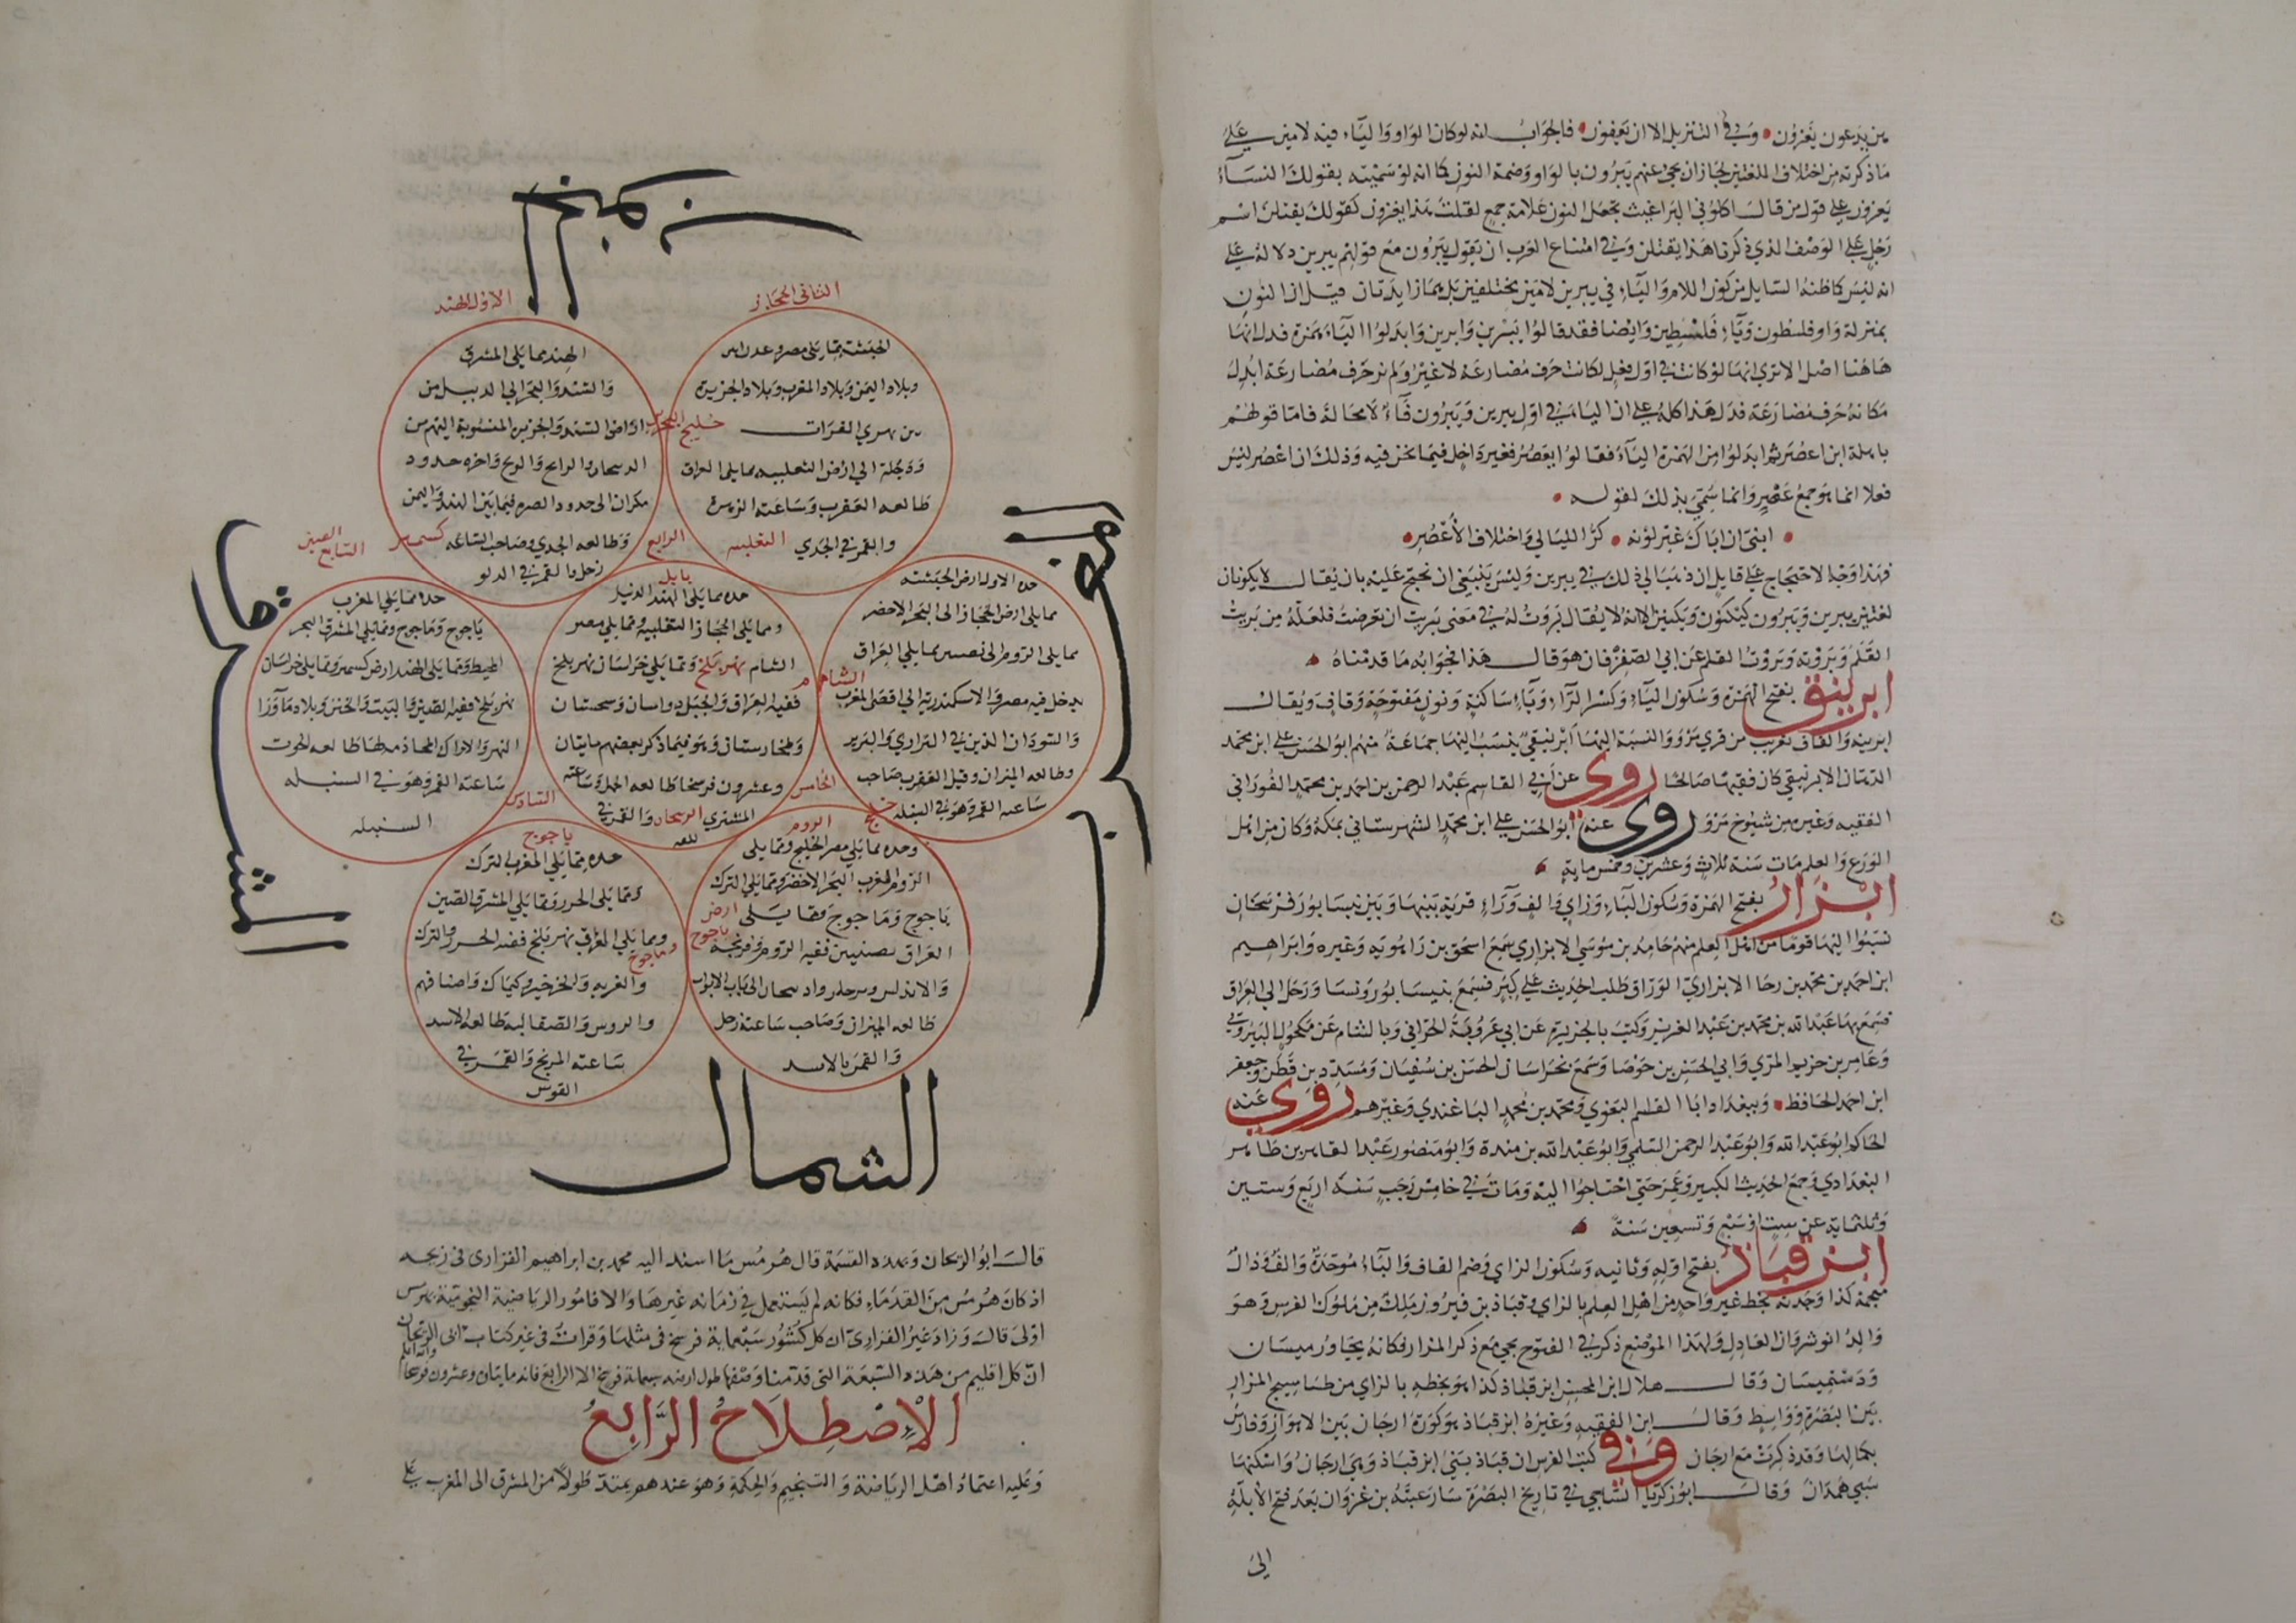 من يدعون يغزون وفي التنزيل الا ان يعفون فالجواب انه لو كان الواو والياء فيه لامين على
ما ذكرته من اختلاف اللغتين لجاز ان يجي عنهم يبرون بالواو وضمة النون كما انه لو سميته بقولك النساء
يغزون على قول من قال اكلوني البراغيث تجعل النون علامة جمع لقلت هذا يغزون كقولك يقتلن اسم
رجل على الوصف الذي ذكرنا هذا يقتلن وفي امتناع العرب ان يقول يبرون مع قولهم يبرين دلالة على
انه ليس كما ظنه السايل من كون اللام والياء في يبرين لامين مختلفين بل هما زايدتان قبل النون
بمنزلة واو فلسطون وياء فلسطين وايضا فقد قالوا يبرين وابرين وابدلوا الياء همزة فدل انها
هاهنا اصل الا ترى انها لو كانت في اول فعل لكانت حرف مضارعة لا غير ولم نر حرف مضارعة ابدل
مكانه حرف مضارعة فدل هذا كله على ان الياء في اول يبرين ويبرون فاء لا محالة فاما قولهم
باهلة ابن اعصر ثم ابدلوا من الهمزة الياء فقالوا يعصر فغير داخل فيما نحن فيه وذلك ان اعصر ليس
فعلا انما هو جمع عصر وانما سمي بذلك لقوله
ابني ان اباك غير لونه كر الليالي واختلاف الاعصر
فهذا وجه الاحتجاج على قايل ان ذهب الى ذلك في يبرين وليس ينبغي ان نحتج عليه بان يقال لا يكونان
لغتين يبرين ويبرون كيكنون ويكنين لانه لا يقال بروت له في معنى بريت ان تعرضت فلعله من بريت
القلم وبروته وبروت القلم عن ابي الصقر فان هو قال هذا فجوابه ما قدمناه
ابرينق بفتح الهمزة وسكون الباء وكسر الراء وياء ساكنة ونون مفتوحة وقاف ويقال
ابرينه والقاف تعريب من قرى مرو والنسبة اليها ابرينقي ينسب اليها جماعة منهم ابو الحسن على ابن محمد
الدهان الابرينقي كان فقيها صالحا روى عن ابي القاسم عبد الرحمن بن احمد بن محمد الفوراني
الفقيه وغيره من شيوخ مرو روى عنه ابو الحسن على ابن محمد الشهرستاني بمكة وكان من اهل
الورع والعلم مات سنة ثلاث وعشرين وخمس ماية
ابزار بفتح الهمزة وسكون الباء وزاي والف وراء قرية بينها وبين نيسابور فرسخان
نسبوا اليها قوما من اهل العلم منهم حامد بن موسى الابزاري سمع اسحق بن راهويه وغيره وابراهيم
ابن احمد بن محمد بن رجا الابزاري الوراق طلب الحديث على كبر فسمع بنيسابور ونسا ورحل الى العراق
فسمع بها عبد الله بن محمد بن عبد العزيز وكتب بالجزيرة عن ابي عروبة الحراني وبالشام عن مكحول البيروتي
وعامر بن خزيم المري وابي الحسن بن حوصا وسمع بخراسان الحسن بن سفيان ومسدد بن قطن وجعفر
ابن احمد الحافظ وببغداد ابا القاسم البغوي ومحمد بن محمد الباغندي وغيرهم روى عنه
الحاكم ابو عبد الله وابو عبد الرحمن السلمي وابو عبد الله بن مندة وابو منصور عبد القاهر بن طاهر
البغدادي وجمع الحديث الكبير وعمر حتى احتاجوا اليه ومات في خامس رجب سنة اربع وستين
وثلثماية عن ست او سبع وتسعين سنة
ابزقباذ بفتح اوله وثانيه وسكون الزاي وضم القاف والباء موحدة والف وذال
معجمة كذا وجدته بخط غير واحد من اهل العلم بالزاي وقباذ بن فيروز ملك من ملوك الفرس وهو
والد انوشروان العادل ولهذا الموضع ذكر في الفتوح يجي مع ذكر المزار فكانه يجاور ميسان
ودستميسان وقال هلال ابن المحسن ابزقباذ كذا هو بخطه بالزاي من طساسيج المزار
بين البصرة وواسط وقال ابن الفقيه وغيره ابزقباذ هو كورة ارجان بين الاهواز وفارس
بكمالها وقد ذكرت مع ارجان وفي كتب الفرس ان قباذ بنى ابزقباذ وهي ارجان واسكنها
سبي همدان وقال ابو زكريا الساجي في تاريخ البصرة سار عتبة بن غزوان بعد فتح الابلة
الى
الجنوب
الاول الهند
الثاني الحجاز
الهند مما يلي المشرق
والسند والبحر الى الديبل من
اراضي السند والجزيرة المنسوبة اليهم من
مكران الى حدود البصرة فيما بين الهند واليمن
وطالعه الجدي وصاحب الساعة
زحل والقمر في الدلو
الحبشة مما يلي مصر وعدن ابين
وبلاد اليمن وبلاد المغرب وبلاد الجزيرة
من نهري الفرات
ودجلة الى ارض الثعلبية مما يلي العراق
طالعه العقرب وساعته الزهرة
والقمر في الجدي
خليج البحرين
الثعلبية
كسمير
الصين
السابع
الرابع
بابل
المغرب
المشرق
حده مما يلي المغرب
ياجوج وماجوج ومما يلي المشرق البحر
المحيط ومما يلي الهند ارض كسمير ومما يلي خراسان
نهر بلخ ففيه الصين والتبت والختن وبلاد ما ورا
النهر والاتراك المحاذية لها طالعه الحوت
ساعته القمر وهو في السنبله
السنبله
حده مما يلي الهند الديبل
ومما يلي الحجاز الثعلبية ومما يلي مصر
الشام نهر بلخ ومما يلي خراسان نهر بلخ
ففيه العراق والجبل وخراسان وسجستان
وطخارستان وهو فيما ذكر بعضهم مايتان
وعشرون فرسخا طالعه الحمل وساعته
المشتري الريحان والقمر في
حده الاول ارض الحبشة
مما يلي ارض الحجاز الى البحر الاخضر
مما يلي الروم الى نصيبين مما يلي العراق
يدخل فيه مصر والاسكندرية الى اقصى المغرب
والسودان الذين في البراري والبربر
وطالعه الميزان وقيل العقرب صاحب
ساعته القمر وهو في السنبله
الشام
السادس
الخامس
خليج
الروم
ياجوج
حده مما يلي المغرب الترك
ومما يلي الخزر ومما يلي المشرق الصين
ومما يلي العراق نهر بلخ ففيه الخزر والترك
والغزيه والخرخيز وكيماك واصنافهم
والروس والصقالبة طالعه الاسد
ساعته المريخ والقمر في
القوس
ارض
ياجوج
وماجوج
وحده مما يلي مصر الخليج ومما يلي
الروم المغرب البحر الاخضر ومما يلي الترك
ياجوج وماجوج ومما يلي
العراق نصيبين ففيه الروم وفرنجة
والاندلس الى باب الابواب
طالعه الميزان وصاحب ساعته زحل
والقمر بالاسد
الشمال
قال ابو الريحان وهذه القسمة قال هرمس ما اسند اليه محمد بن ابراهيم الفزارى في زيجه
اذ كان هرمس من القدماء فكانه لم يستعمل في زمانه غيرها والا فامور الرياضية النجومية بهرمس
اولى قال وزاد غير الفزارى ان كل كشور سبعماية فرسخ في مثلها وقرات في غير كتاب ابى الريحان
ان كل اقليم من هذه السبعة التي قدمنا وصفها طول ارضه سبعماية فرسخ الا الرابع فانه مايتان وعشرون فرسخا والله اعلم
الاصطلاح الرابع
وعليه اعتماد اهل الرياضة والتنجيم والحكمة وهو عندهم يمتد طولا من المشرق الى المغرب على